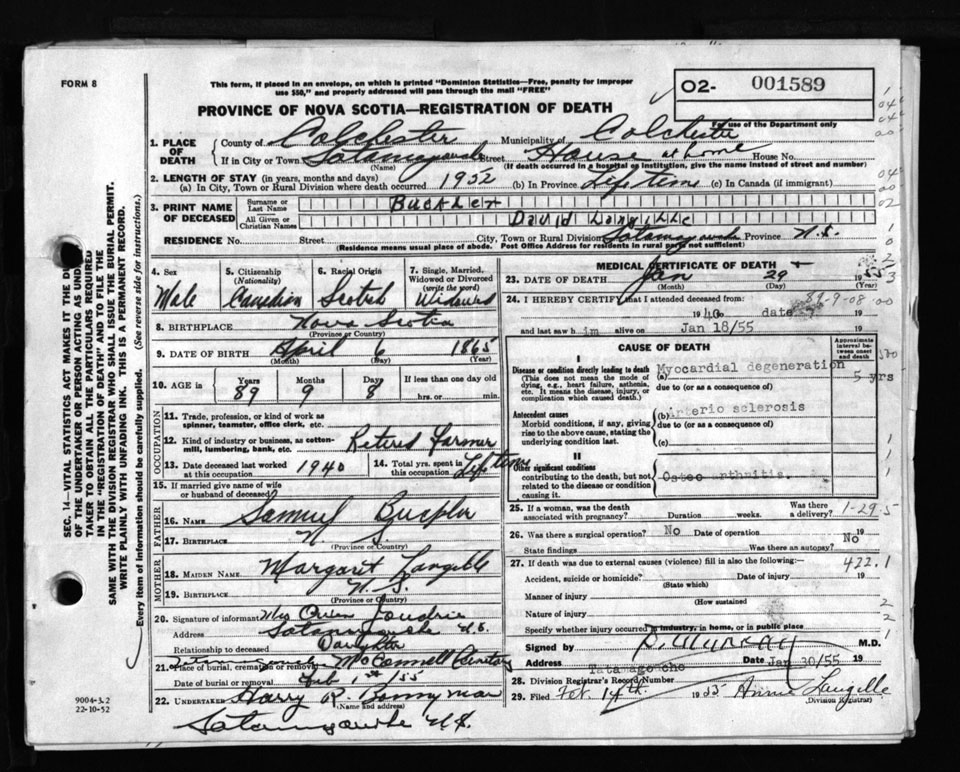 FORM 8
This form, if placed in an envelope, on which is printed "Dominion Statistics—Free, penalty for improper
use $50," and properly addressed will pass through the mail "FREE"
02- 001589
For use of the Department only
PROVINCE OF NOVA SCOTIA—REGISTRATION OF DEATH
1. PLACE OF DEATH County of Colchester Municipality of Colchester
If in City or Town Street House at home House No.
(Name) (If death occurred in a hospital or institution, give the name instead of street and number)
2. LENGTH OF STAY (in years, months and days)
(a) In City, Town or Rural Division where death occurred 1952 (b) In Province Lifetime (c) In Canada (if immigrant)
3. PRINT NAME OF DECEASED Surname or Last Name
All Given or Christian Names David Langille
RESIDENCE No. Street City, Town or Rural Division Province N.S.
(Residence means usual place of abode. Post Office Address for residents in rural parts not sufficient)
4. Sex Male
5. Citizenship (Nationality) Canadian
6. Racial Origin Scotch
7. Single, Married, Widowed or Divorced (write the word) Widowed
8. BIRTHPLACE Nova Scotia
(Province or Country)
9. DATE OF BIRTH April 6 1865
(Month) (Day) (Year)
10. AGE in Years 89 Months 9 Days 8 If less than one day old hrs. or min.
OCCUPATION
11. Trade, profession, or kind of work as spinner, teamster, office clerk, etc.
12. Kind of industry or business, as cotton-mill, lumbering, bank, etc. Retired Farmer
13. Date deceased last worked at this occupation 1940
14. Total yrs. spent in this occupation Lifetime
15. If married give name of wife or husband of deceased
FATHER
16. NAME Samuel
17. BIRTHPLACE N. S.
(Province or Country)
MOTHER
18. MAIDEN NAME Margaret Langille
19. BIRTHPLACE N. S.
(Province or Country)
20. Signature of informant Mrs
Address N.S.
Relationship to deceased Daughter
21. Place of burial, cremation or removal McConnell Cemetery
Date of burial or removal Feb 1st 55
22. UNDERTAKER Harry R.
(Name and address)
N.S.
9004-3.2
22-10-52
MEDICAL CERTIFICATE OF DEATH
23. DATE OF DEATH Jan 29 1955
(Month) (Day)
24. I HEREBY CERTIFY that I attended deceased from: 89-9-08
19 date 19
and last saw him alive on Jan 18/55 19
CAUSE OF DEATH
Approximate interval between onset and death
I
Disease or condition directly leading to death
(This does not mean the mode of dying, e.g., heart failure, asthenia, etc. It means the disease, injury, or complication which caused death.)
(a) Myocardial degeneration 5 yrs
due to (or as a consequence of)
Antecedent causes
Morbid conditions, if any, giving rise to the above cause, stating the underlying condition last.
(b) Arterio sclerosis
due to (or as a consequence of)
(c)
II
Other significant conditions
contributing to the death, but not related to the disease or condition causing it.
Osteo arthritis.
25. If a woman, was the death associated with pregnancy? Duration weeks. Was there a delivery?
1-29-5
26. Was there a surgical operation? No Date of operation 19
State findings Was there an autopsy? No
27. If death was due to external causes (violence) fill in also the following:— 422.1
Accident, suicide or homicide? Date of injury 19
(State which)
Manner of injury
(How sustained
Nature of injury
Specify whether injury occurred in industry, in home, or in public place
Signed by D. Murray M.D.
Address Tatamagouche Date Jan 30/55 19
28. Division Registrar's Record Number
29. Filed Feb. 14th. 1955 Annie Langille
(Division Registrar)
SEC. 14—VITAL STATISTICS ACT MAKES IT THE DU
OF THE UNDERTAKER OR PERSON ACTING AS UNDE
TAKER TO OBTAIN ALL THE PARTICULARS REQUIRED
IN THE "REGISTRATION OF DEATH" AND TO FILE THE
SAME WITH THE DIVISION REGISTRAR WHO SHALL ISSUE THE BURIAL PERMIT.
WRITE PLAINLY WITH UNFADING INK. THIS IS A PERMANENT RECORD.
Every item of information should be carefully supplied. (See reverse side for instructions.)